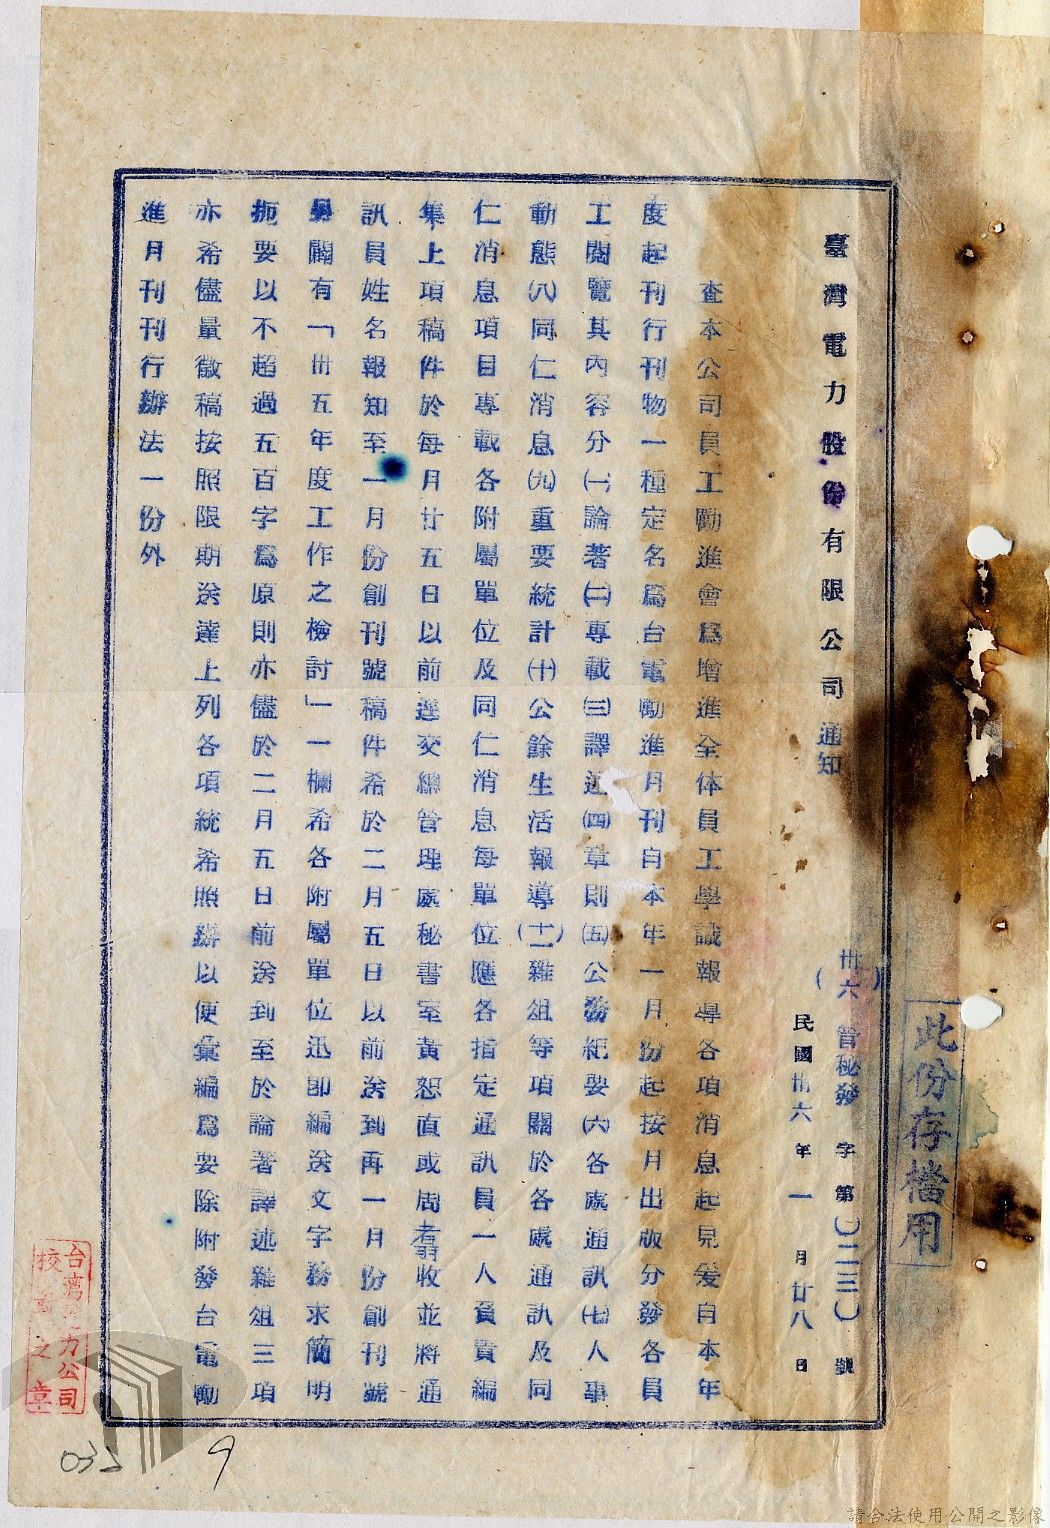 臺灣電力股份有限公司通知
卅六管秘發字第〇二三〇號
民國卅六年一月廿八日
此份存檔用
查本公司員工勵進會爲增進全体員工學識報導各項消息起見爰自本年
度起刊行刊物一種定名爲台電勵進月刊自本年一月份起按月出版分發各員
工閱覽其內容分㈠論著㈡專載㈢譯述㈣章則㈤公務紀要㈥各處通訊㈦人事
動態㈧同仁消息㈨重要統計㈩公餘生活報導(十一)雜俎等項關於各處通訊及同
仁消息項目專載各附屬單位及同仁消息每單位匯各指定通訊員一人負責編
集上項稿件於每月廿五日以前逕交總管理處秘書室黃恕直或周收並將通
訊員姓名報知至一月份創刊號稿件希於二月五日以前送到再一月份創刊號
關有「卅五年度工作之檢討」一欄希各附屬單位迅卽編送文字務求簡明
扼要以不超過五百字爲原則亦儘於二月五日前送到至於論著譯述雜俎三項
亦希儘量徵稿按照限期送達上列各項統希照辦以便彙編爲要除附發台電勵
進月刊刊行辦法一份外
台灣電力公司
校對之章
035
9
請合法使用公開之影像